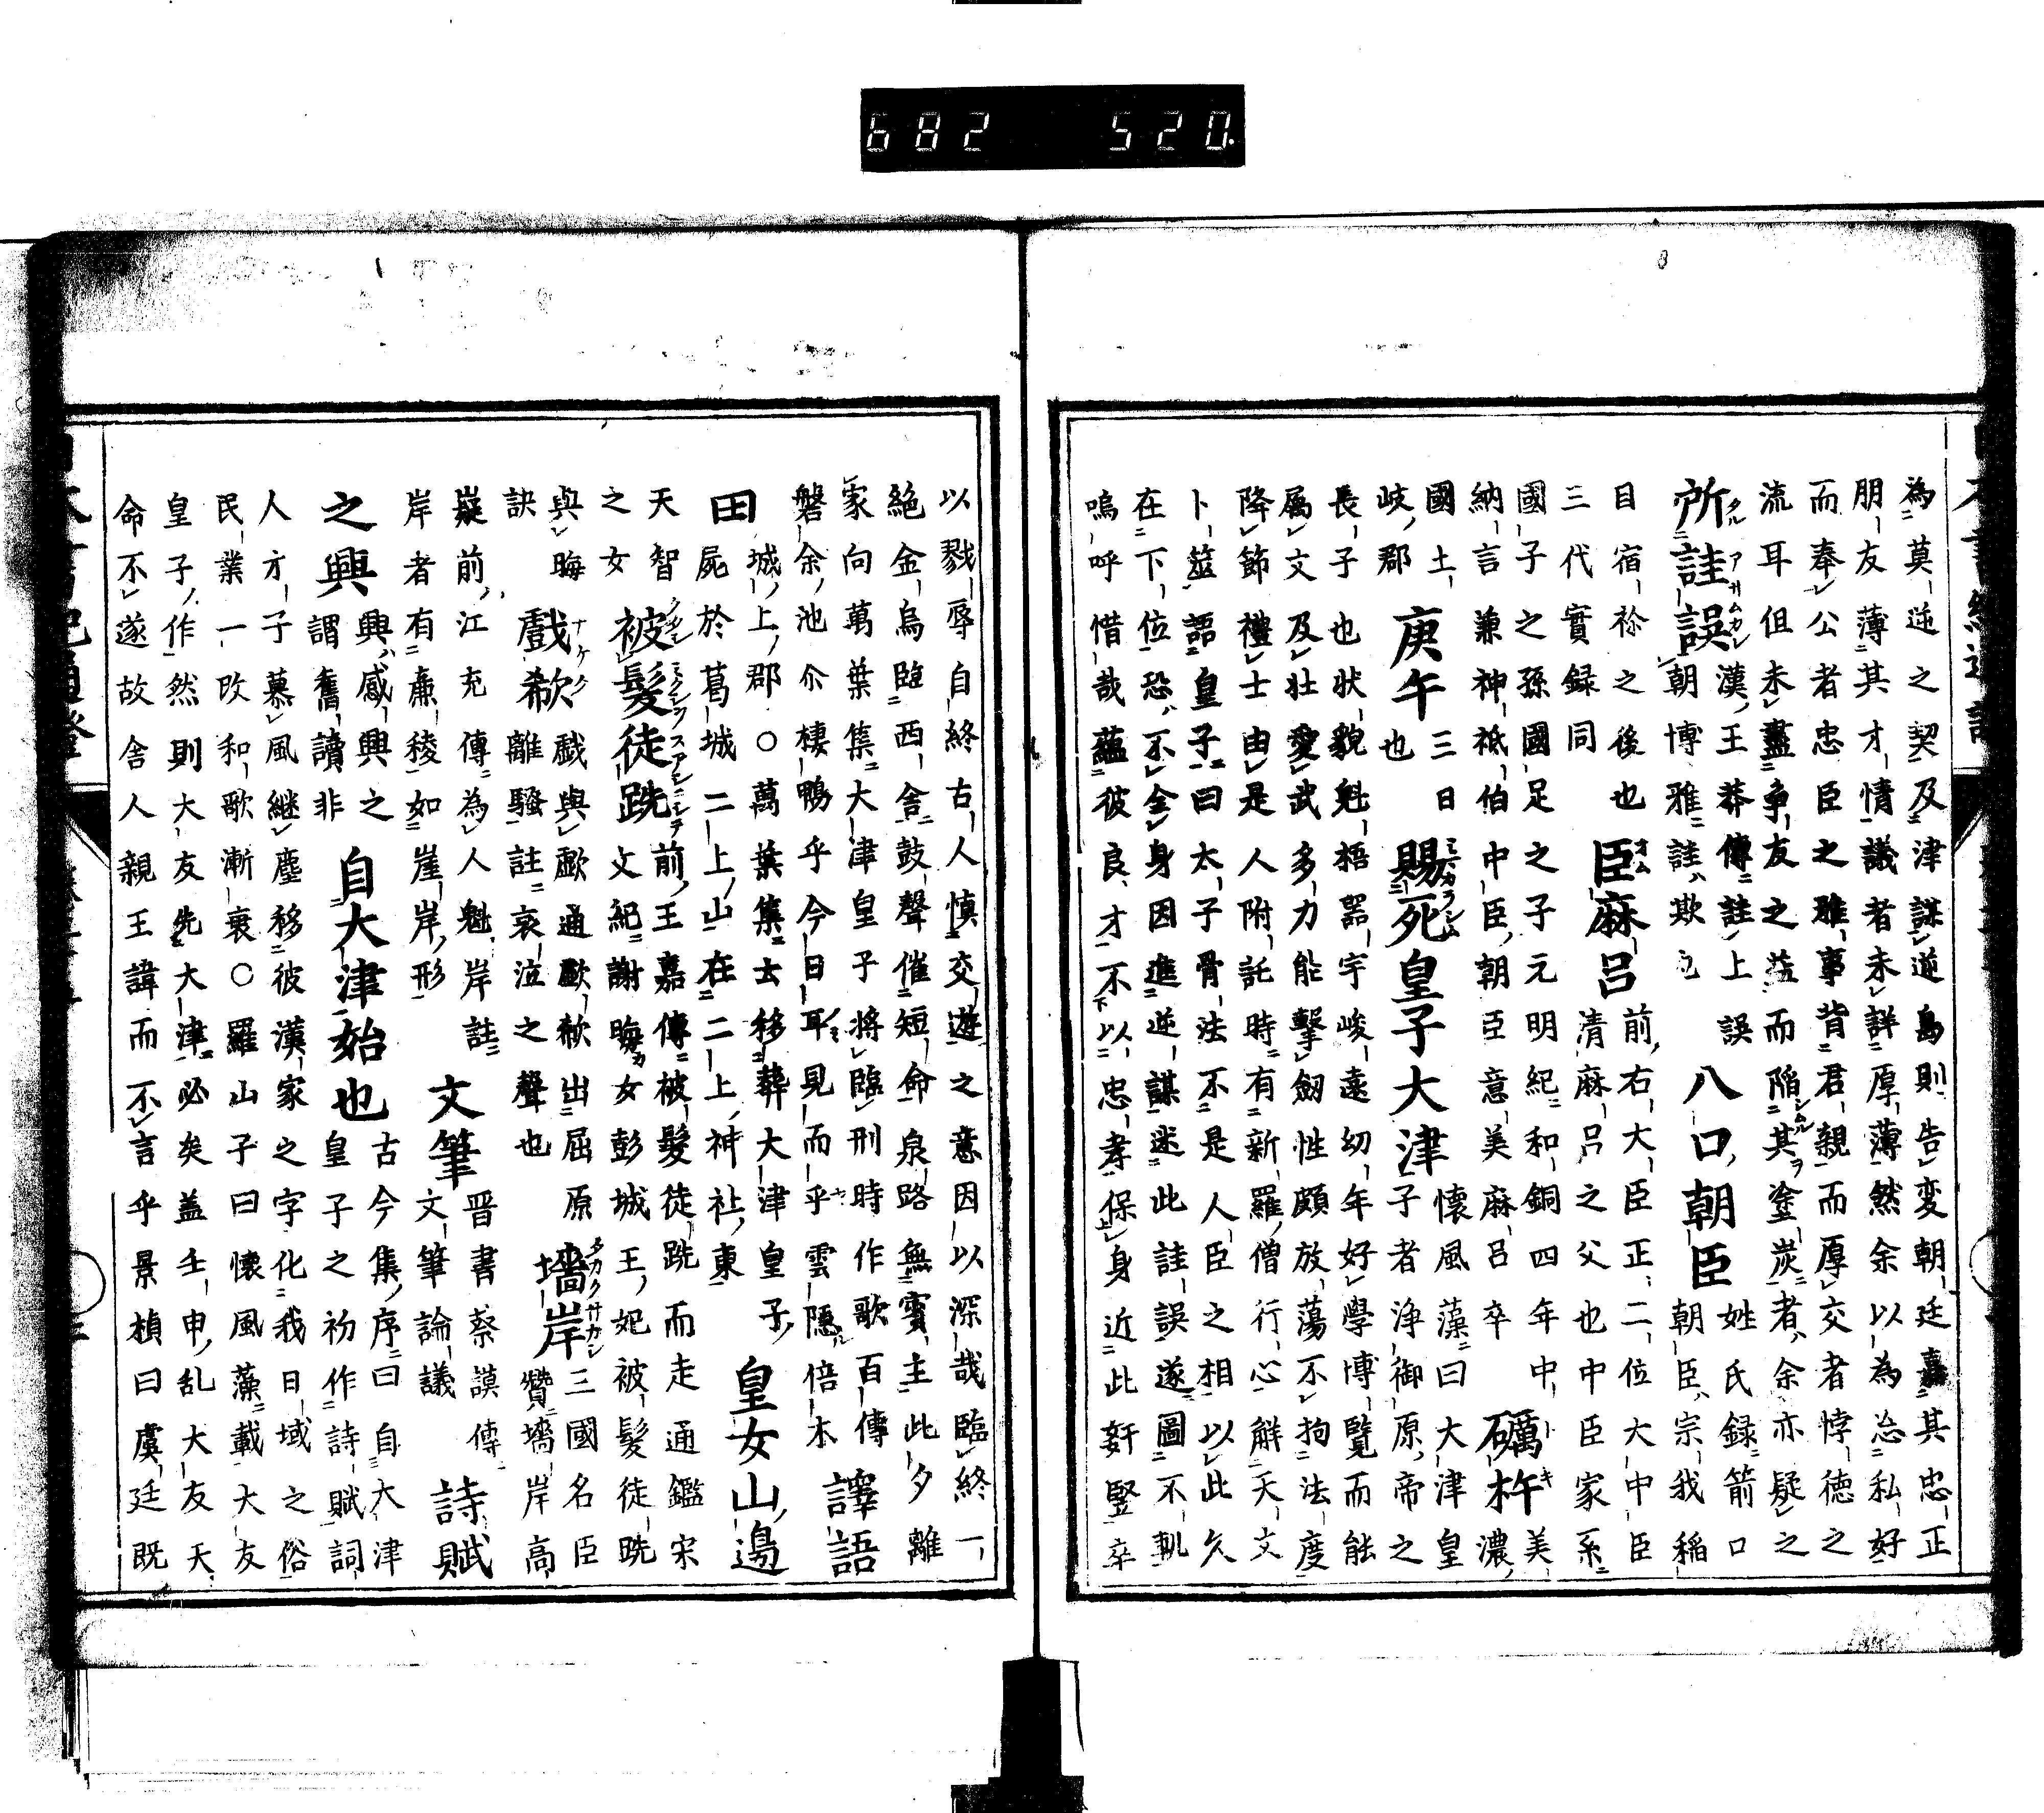 682 520.
為莫逆之契及津謀逆島則告変朝廷嘉其忠正
朋友薄其才情議者未詳厚薄然余以為忘私好
而奉公者忠臣之雅事背君親而厚交者悖徳之
流耳但未盡争友之益而陷其塗炭者余亦疑之
所詿誤漢王莽傳註上誤
朝博雅註欺也
八口朝臣姓氏録箭口
朝臣宗我稲
目宿祢之後也
三代實録同
臣麻呂前右大臣正二位大中臣
清麻呂之父也中臣家系
國子之孫國足之子元明紀和銅四年中
納言兼神祇伯中臣朝臣意美麻呂卒
礪杵美
濃
國土
岐郡
庚午三日
也
賜死皇子大津懐風藻曰大津皇
子者浄御原帝之
長子也状貌魁梧器宇峻遠幼年好學博覽而能
属文及壮愛武多力能擊劔性頗放蕩不拘法度
降節禮士由是人附託時有新羅僧行心解天文
卜筮語皇子曰太子骨法不是人臣之相以此久
在下位恐不全身因進逆謀迷此詿誤遂圖不軌
嗚呼惜哉蘊彼良才不以忠孝保身近此姧竪卒
以戮辱自終古人慎交遊之意因以深哉臨終一
絶金烏臨西舎鼓聲催短命泉路無賓主此夕離
家向萬葉集大津皇子將臨刑時作歌百傳
磐余池尒棲鴨乎今日耳見而乎雲隱倍本
譯語
田城上郡○萬葉集云移葬大津皇子
屍於葛城二上山在二上神社東
皇女山邊
天智
之女
被髮徒跣前王嘉傳被髮徒跣而走通鑑宋
文紀謝晦女彭城王妃被髮徒跣
與晦
訣
戲欷戯與歔通歔欷出屈原
離騷註哀泣之聲也
墻岸三國名臣
贊墻岸高
嶷前江充傳為人魁岸註
岸者有亷稜如崖岸形
文筆晋書蔡謨傳
文筆論議
詩賦
之興興感興之
謂舊讀非
自大津始也古今集序曰自大津
皇子之初作詩賦詞
人才子慕風継塵移彼漢家之字化我日域之俗
民業一改和歌漸衰○羅山子曰懐風藻載大友
皇子作然則大友先大津必矣盖壬申乱大友天
命不遂故舎人親王諱而不言乎景楨曰虞廷既